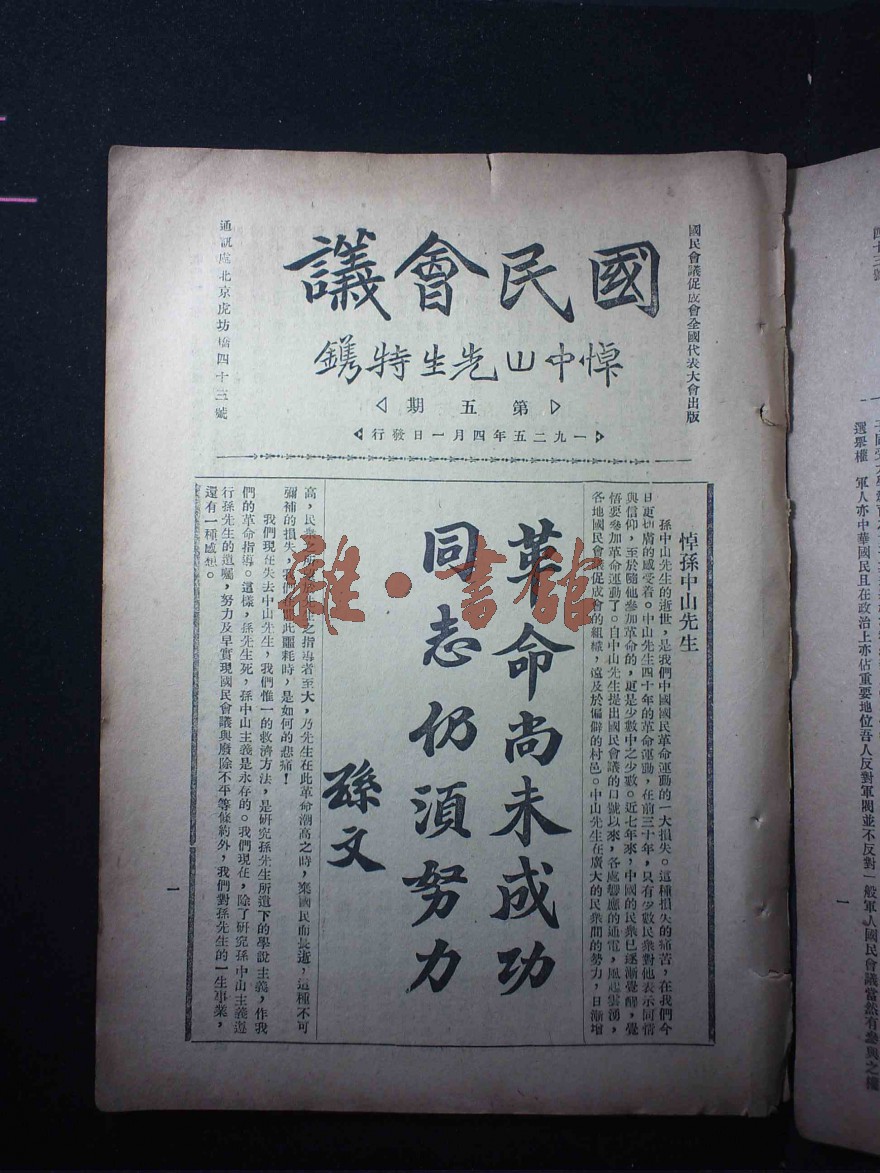 國民會議促成會全國代表大會出版
國民會議
悼中山先生特鐫
第五期
一九二五年四月一日發行
通訊處北京虎坊橋四十三號
悼孫中山先生
孫中山先生的逝世，是我們中國國民革命運動的一大損失。這種損失的痛苦，在我們今
日更切膚的感受着。中山先生四十年的革命運動，在前三十年，只有少數民衆對他表示同情
與信仰，至於隨他參加革命的，更是少數中之少數。近七年來，中國的民衆已逐漸覺醒，覺
悟要參加革命運動了。自中山先生提出國民會議的口號以來，各處響應的通電，風起雲湧，
各地國民會議促成會的組織，遠及於偏僻的村邑。中山先生在廣大的民衆間的勢力，日漸增
革命尚未成功
同志仍須努力
孫文
高，民衆之指導者至大，乃先生在此革命潮高之時，棄國民而長逝，這種不可
彌補的損失，我們此噩耗時，是如何的悲痛！
我們現在失去中山先生，我們惟一的救濟方法，是研究孫先生所遺下的學說主義，作我
們的革命指導。這樣，孫先生死，孫中山主義是永存的。我們現在，除了研究孫中山主義遵
行孫先生的遺囑，努力及早實現國民會議與廢除不平等條約外，我們對孫先生的一生事業，
還有一種感想。
一
雜·書館
四十三號
選舉權　軍人亦中華國民且在政治上亦佔重要地位吾人反對軍閥並不反對一般軍人國民會議當然有參與之權
一